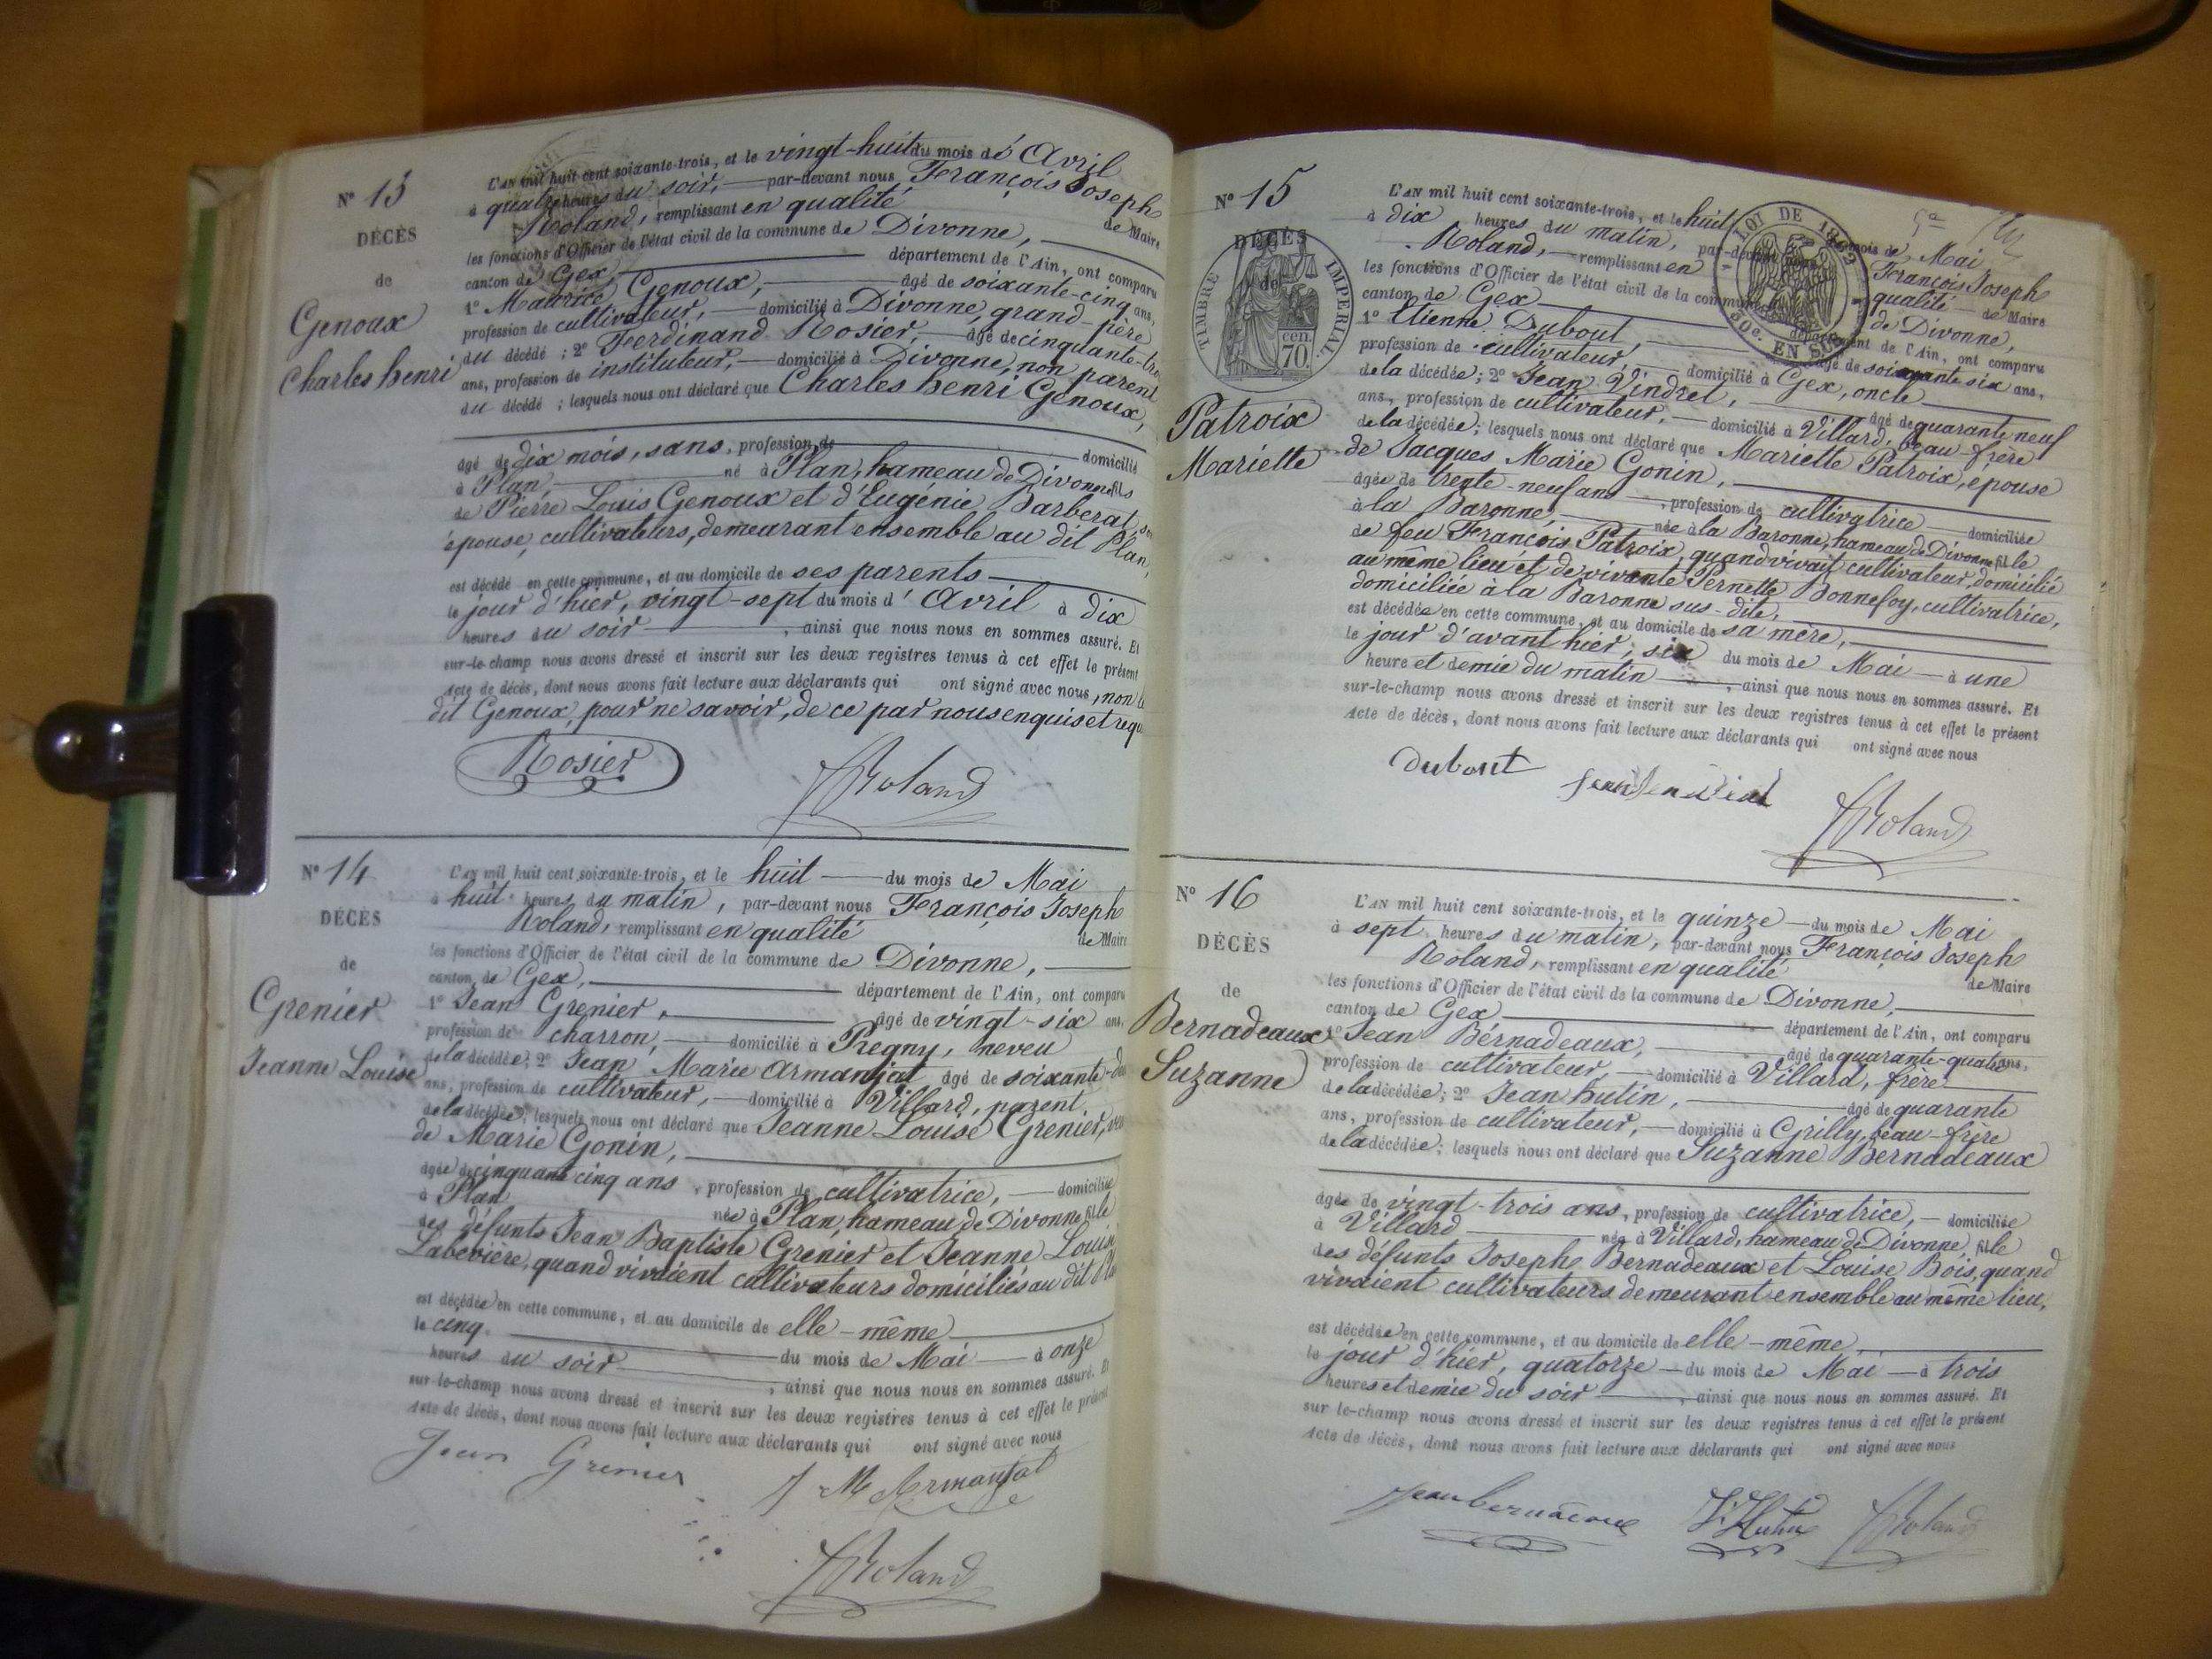 Nº 13
DÉCÈS
de
Genoux
Charles henri
L'AN mil huit cent soixante-trois, et le vingt-huit du mois d'Avril
à quatre heures du soir, par-devant nous François Joseph
Roland, remplissant en qualité de Maire
les fonctions d'Officier de l'état civil de la commune de Divonne,
canton de Gex, département de l'Ain, ont comparu
1º Maurice Genoux, âgé de soixante-cinq ans,
profession de cultivateur, domicilié à Divonne, grand-père
du décédé ; 2º Ferdinand Rosier, âgé de cinquante-tro
ans, profession de instituteur, domicilié à Divonne, non parent
du décédé ; lesquels nous ont déclaré que Charles henri Genoux,
âgé de dix mois, sans, profession de domicilié
à Plan, né à Plan, hameau de Divonne fils
de Pierre Louis Genoux et d'Eugénie Barberat, son
épouse, cultivateurs, demeurant ensemble au dit Plan,
est décédé en cette commune, et au domicile de ses parents
le jour d'hier, vingt-sept du mois d'Avril à dix
heures du soir, ainsi que nous nous en sommes assuré. Et
sur-le-champ nous avons dressé et inscrit sur les deux registres tenus à cet effet le présent
Acte de décès, dont nous avons fait lecture aux déclarants qui ont signé avec nous, non le
dit Genoux, pour ne savoir, de ce par nous enquis et requ
Rosier
Roland
Nº 14
DÉCÈS
de
Grenier
Jeanne Louise
L'AN mil huit cent soixante-trois, et le huit du mois de Mai
à huit heures du matin, par-devant nous François Joseph
Roland, remplissant en qualité de Maire
les fonctions d'Officier de l'état civil de la commune de Divonne,
canton de Gex, département de l'Ain, ont comparu
1º Jean Grenier, âgé de vingt-six ans,
profession de charron, domicilié à Pregny, neveu
de la décédée; 2º Jean Marie Armanjat âgé de soixante-deu
ans, profession de cultivateur, domicilié à Villard, parent
de la décédée; lesquels nous ont déclaré que Jeanne Louise Grenier, veu
de Marie Gonin,
âgée de cinquante cinq ans, profession de cultivatrice, domiciliée
à Plan née à Plan, hameau de Divonne fille
des défunts Jean Baptiste Grenier et Jeanne Louise
Labevière, quand vivaient cultivateurs domiciliés au dit Pla
est décédée en cette commune, et au domicile de elle-même
le cinq du mois de Mai à onze
heures du soir, ainsi que nous nous en sommes assuré. Et
sur-le-champ nous avons dressé et inscrit sur les deux registres tenus à cet effet le présent
Acte de décès, dont nous avons fait lecture aux déclarants qui ont signé avec nous
Jean Grenier
J M Armanjat
Roland
Nº 15
DÉCÈS
de
TIMBRE IMPERIAL
cen.
70.
Patroix
Mariette
LOI DE 1862
50c. EN SUS
L'AN mil huit cent soixante-trois, et le huit du mois de Mai
à dix heures du matin, par-devant nous François Joseph
Roland, remplissant en qualité de Maire
les fonctions d'Officier de l'état civil de la commune de Divonne,
canton de Gex département de l'Ain, ont comparu
1º Etienne Dubout, âgé de soixante six ans,
profession de cultivateur, domicilié à Gex, oncle
de la décédée; 2º Jean Vindret, âgé de quarante neuf
ans, profession de cultivateur, domicilié à Villard, beau-frère
de la décédée; lesquels nous ont déclaré que Mariette Patroix, épouse
de Jacques Marie Gonin,
âgée de trente-neuf ans, profession de cultivatrice domiciliée
à la Baronne, née à la Baronne, hameau de Divonne fille
de feu François Patroix, quand vivait cultivateur, domicilié
au même lieu et de vivante Pernette Bonnefoy, cultivatrice,
domiciliée à la Baronne sus-dite,
est décédée en cette commune, et au domicile de sa mère,
le jour d'avant hier, six du mois de Mai à une
heure et demie du matin, ainsi que nous nous en sommes assuré. Et
sur-le-champ nous avons dressé et inscrit sur les deux registres tenus à cet effet le présent
Acte de décès, dont nous avons fait lecture aux déclarants qui ont signé avec nous
Dubout
Roland
Nº 16
DÉCÈS
de
Bernadeaux
Suzanne
L'AN mil huit cent soixante-trois, et le quinze du mois de Mai
à sept heures du matin, par-devant nous François Joseph
Roland, remplissant en qualité de Maire
les fonctions d'Officier de l'état civil de la commune de Divonne,
canton de Gex département de l'Ain, ont comparu
1º Jean Bérnadeaux, âgé de quarante-quatre ans,
profession de cultivateur, domicilié à Villard, frère
de la décédée; 2º Jean hutin, âgé de quarante
ans, profession de cultivateur, domicilié à Grilly, beau-frère
de la décédée; lesquels nous ont déclaré que Suzanne Bernadeaux
âgée de vingt-trois ans, profession de cultivatrice, domiciliée
à Villard née à Villard, hameau de Divonne, fille
des défunts Joseph Bernadeaux et Louise Bois, quand
vivaient cultivateurs demeurant ensemble au même lieu,
est décédée en cette commune, et au domicile de elle-même
le jour d'hier, quatorze du mois de Mai à trois
heures et demie du soir, ainsi que nous nous en sommes assuré. Et
sur le-champ nous avons dressé et inscrit sur les deux registres tenus à cet effet le présent
Acte de décès, dont nous avons fait lecture aux déclarants qui ont signé avec nous
Jean Bernadeaux
J. Hutin
Roland